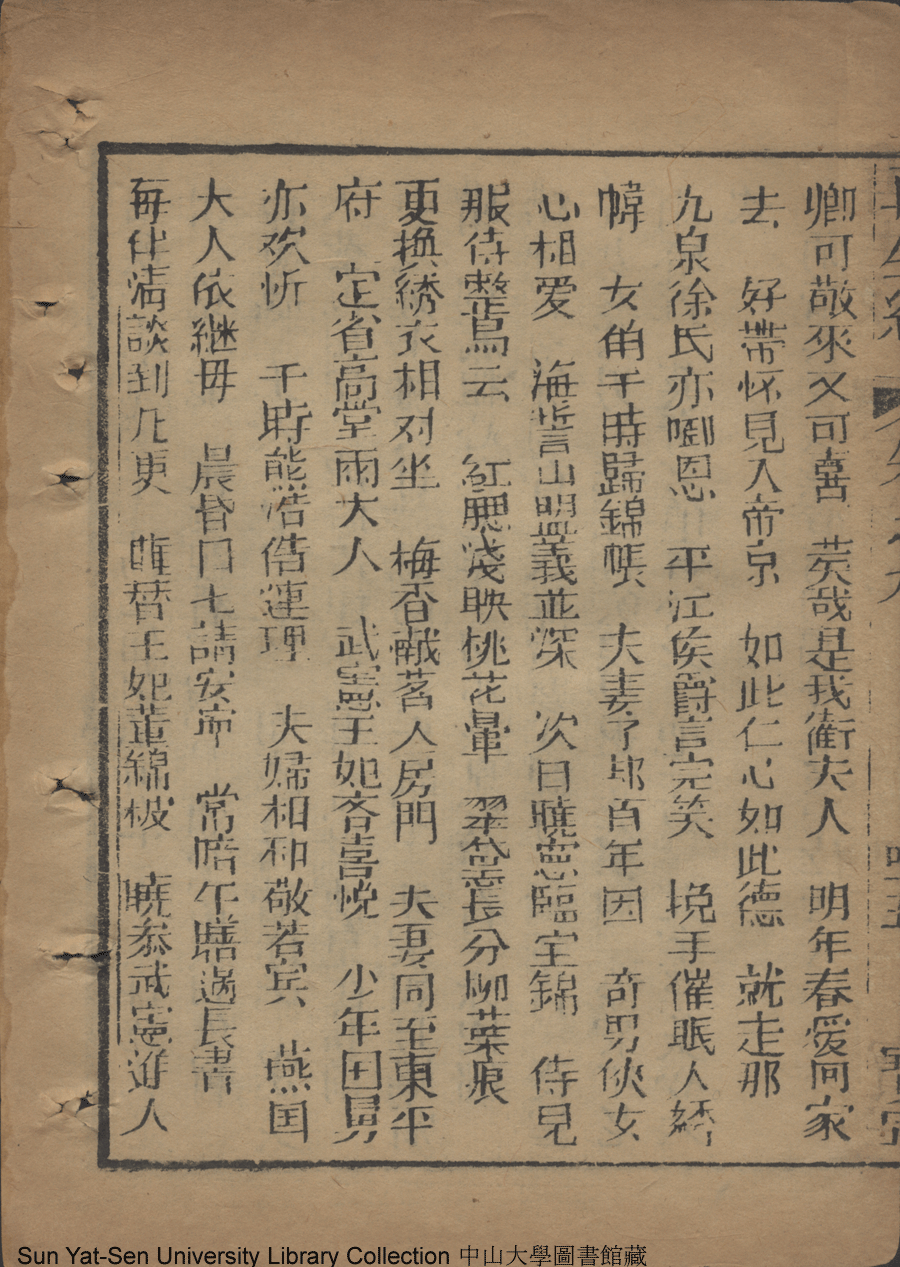 卿可敬來又可喜　英哉是我衛夫人　明年春爱同家
去　好帶怀見入帝京　如此仁心如此德　就走那
九泉徐氏亦啣恩　平江侯爵言完笑　挽手催眠人綉
幃　女伯干時歸錦帳　夫妻了却百年因　奇男俠女
心相愛　海誓山盟義並深　次日曉窓臨宝錦　侍兒
服侍整烏云　紅腮淺映桃花暈　翠黛長分柳葉痕
更換綉衣相对坐　梅香献茗人房門　夫妻同至東平
府　定省高堂兩大人　武憲王妃吝喜悅　少年囯舅
亦欢忻　千時熊浩偕連理　夫婦相和敬若宾　燕国
大人依継毋　晨昏日七請安寧　常陪午膳過長書
每伴清談到几更　唯替王妃董綿被　曉叅武憲進人
四五
Sun Yat-Sen University Library Collection 中山大學圖書館藏